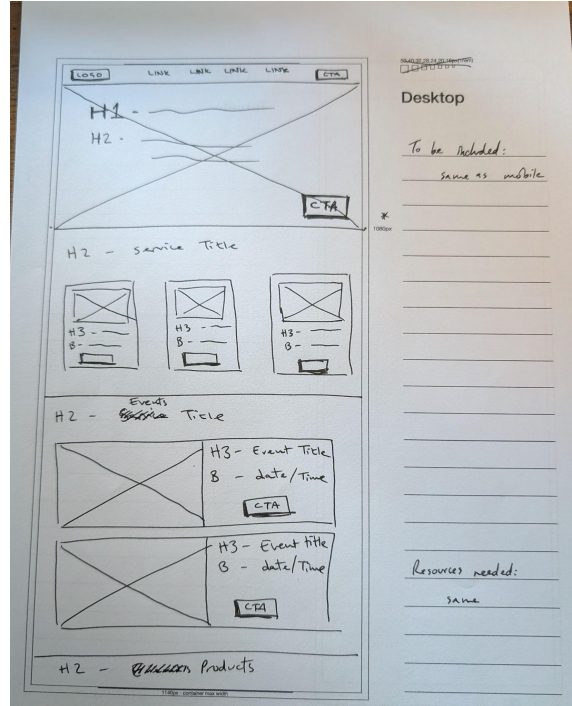 LOGO LINK LINK LINK LINK CTA
H1 -
H2 -
CTA
H2 - Service Title
H3 - H3 - H3 -
B - B - B -
Events
H2 - Title
H3 - Event Title
B - date/Time
CTA
H3 - Event title
B - date/Time
CTA
H2 - Products
1140px - container max width
Desktop
To be included:
same as mobile
*
1080px
Resources needed:
same